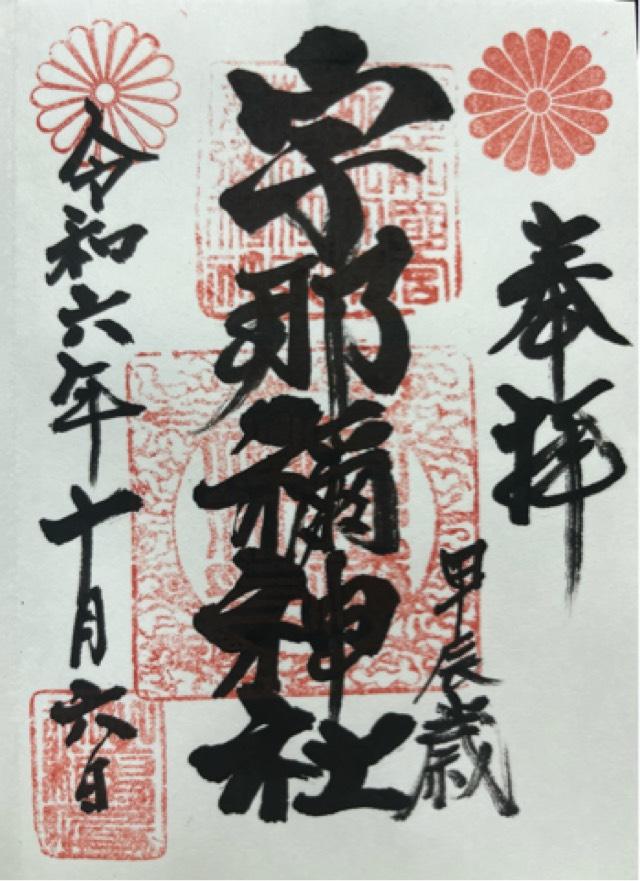 奉拝
甲辰歳
宇那禰神社
令和六年十月六日